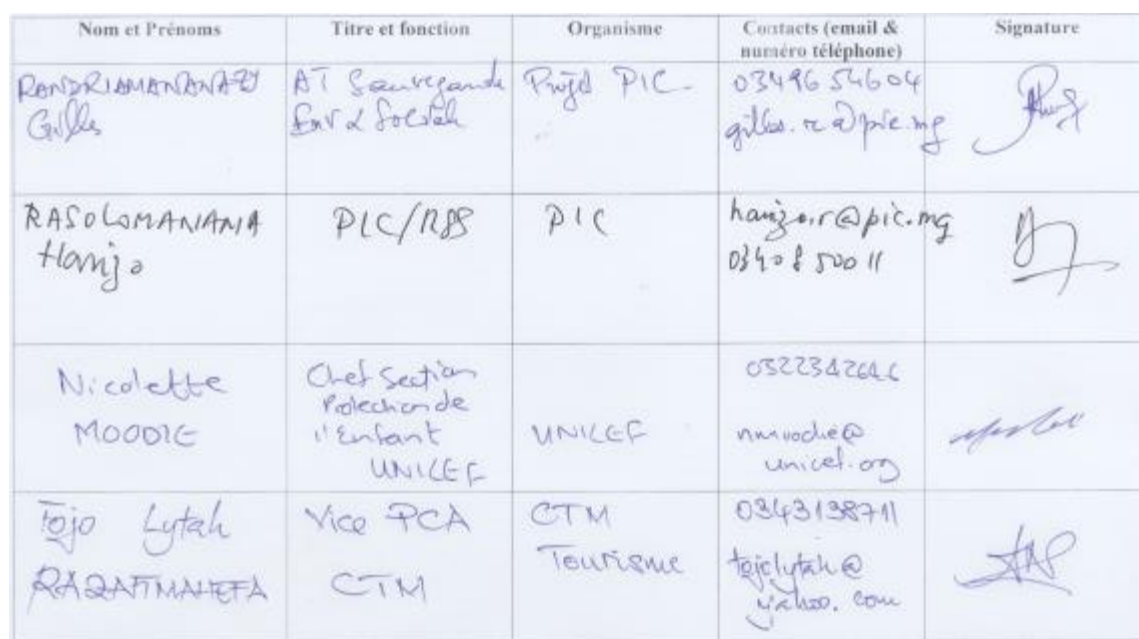 Nom et Prénoms Titre et fonction Organisme Contacts (email & numéro téléphone) Signature
RANDRIAMANANA
Gilles
AT Sauvegarde
Env & Sociale
Projet PIC
0349654604
gilles.r@pic.mg
RASOLOMANANA
Hanjo
PIC/RSS
PIC
03408 500 11
Nicolette
MOODIE
Chef Section
Protection de
l'Enfant
UNICEF
UNICEF
nmoodie@
unicef.org
Tojo Lytah
RAZAFIMAHEFA
Vice PCA
CTM
CTM
Tourisme
0343138711
tojolytah@
yahoo.com